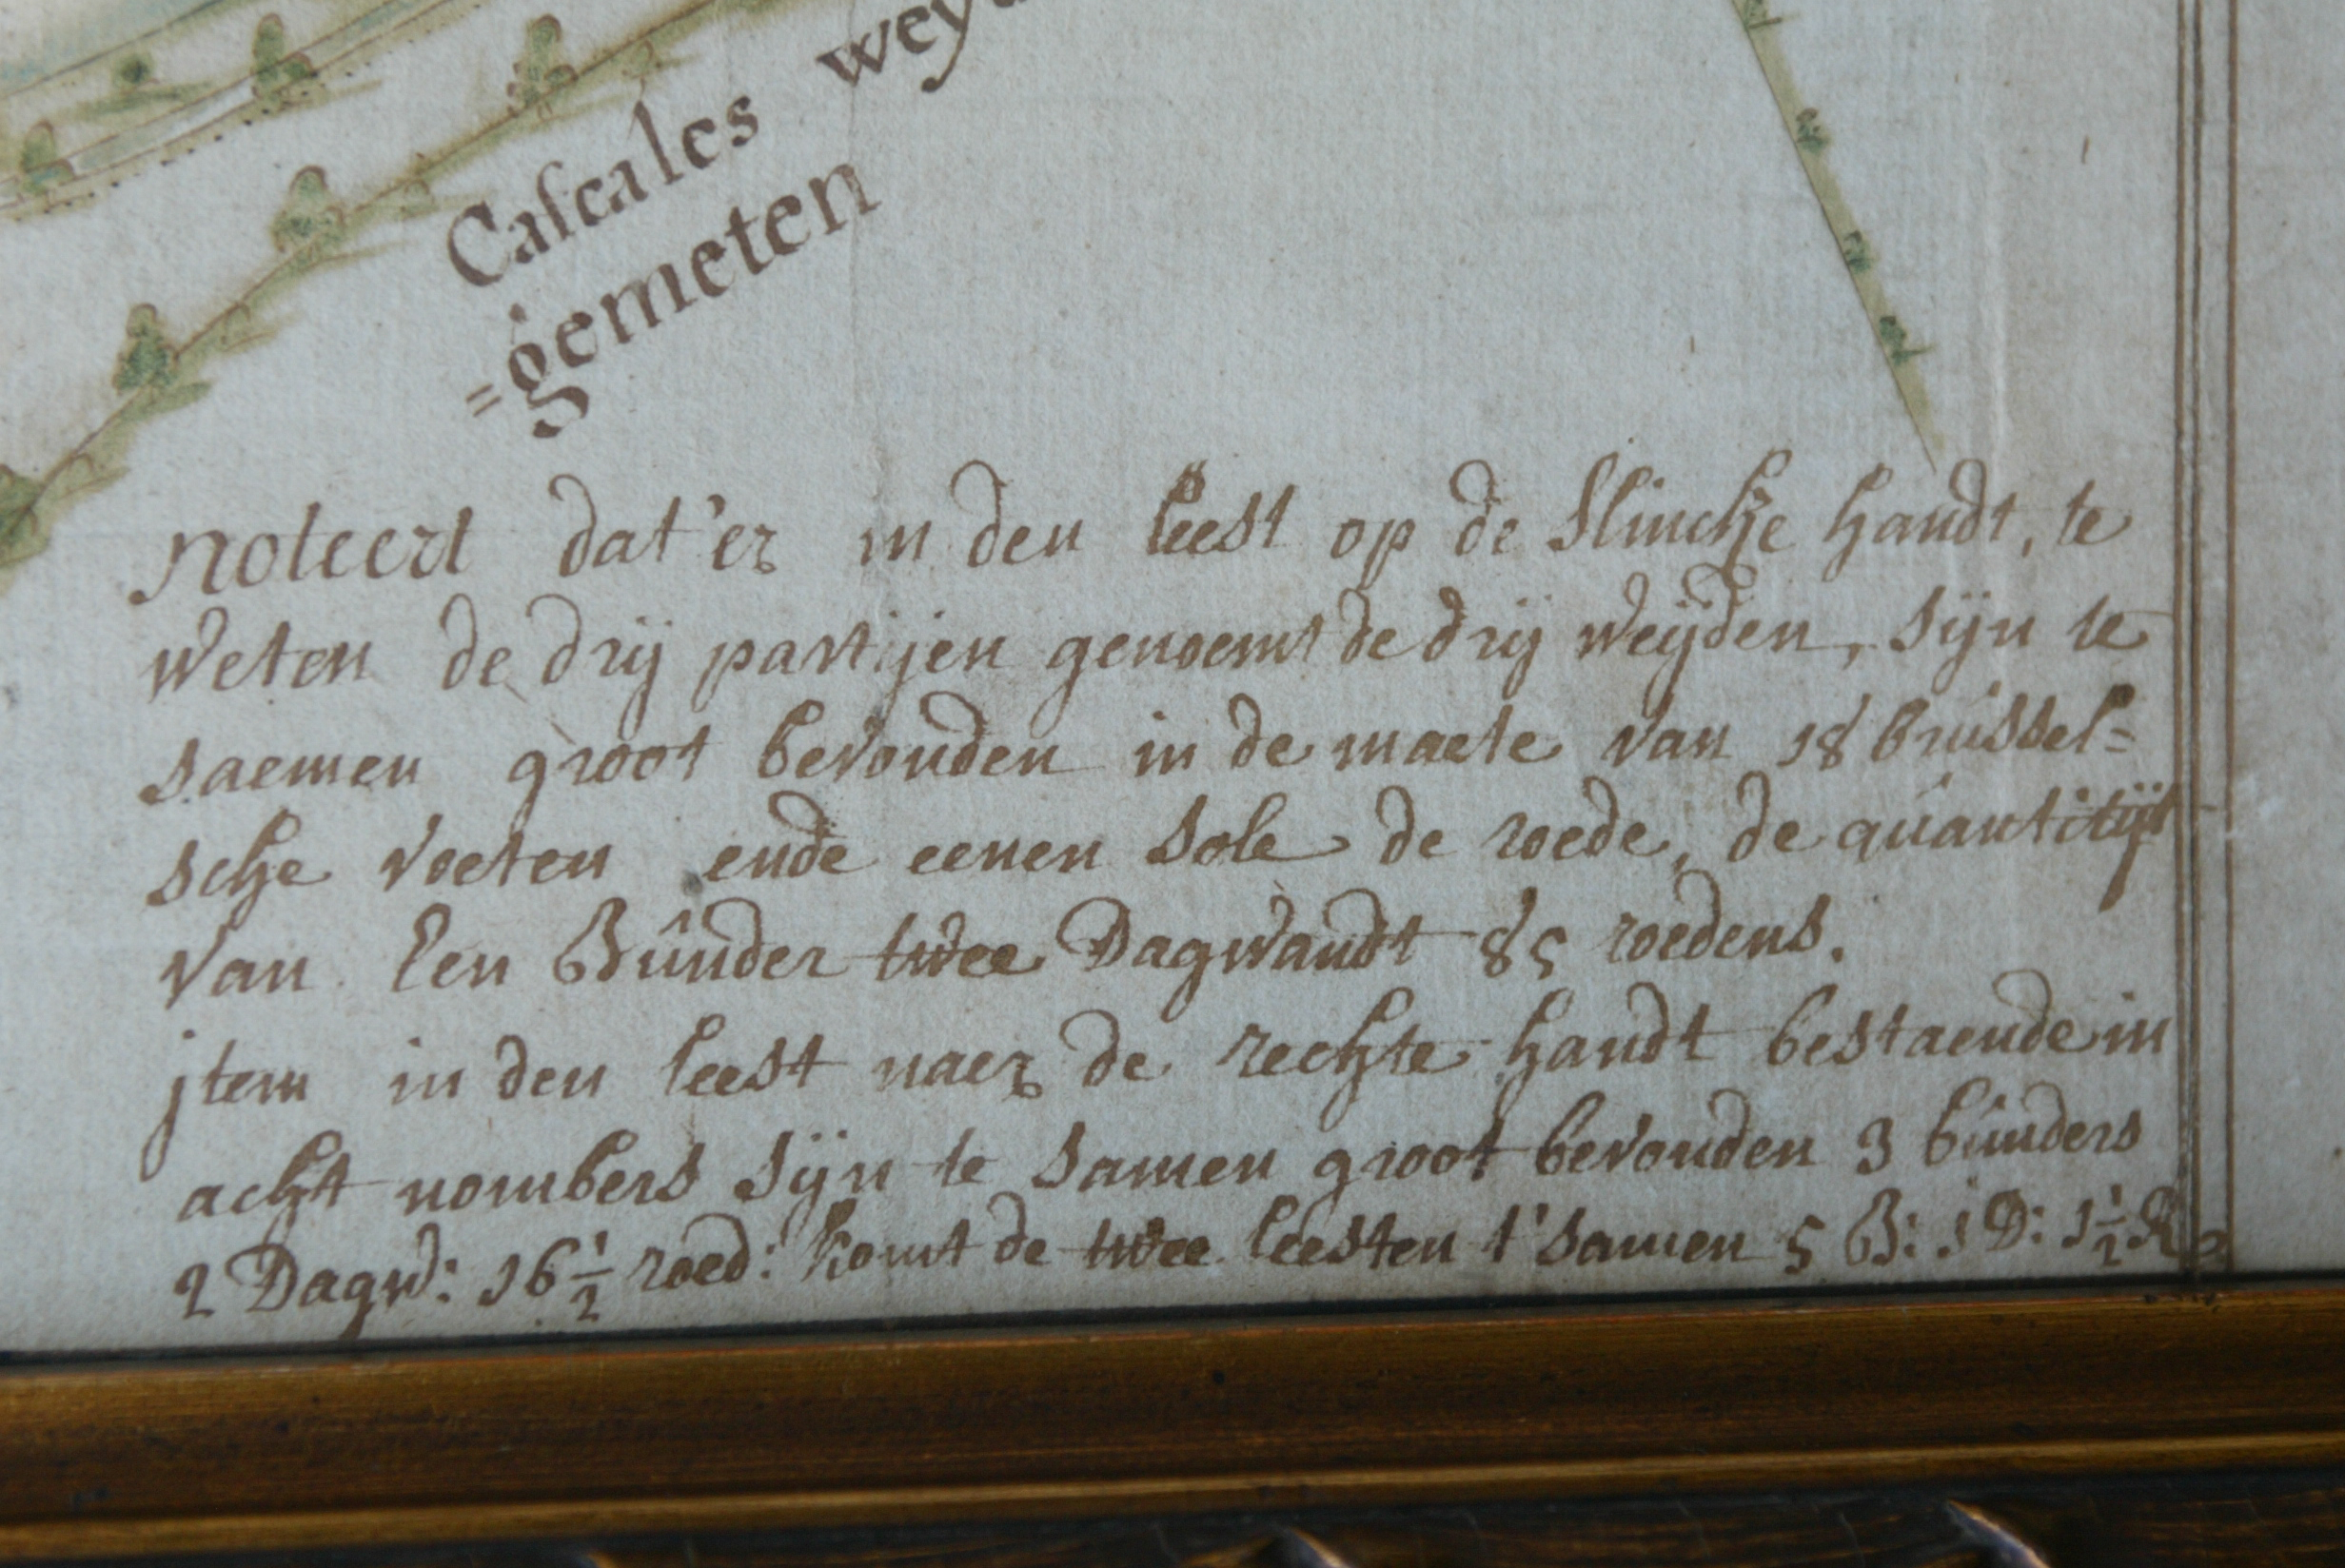 Cascales wey
=gemeten
Noteert dat'er in den leest op de slincke handt, te
weten de drij partijen genoemt de drij weijden, sijn te
saemen groot bevonden in de maete van 18 brussel=
sche voeten ende eenen sole de roede, de quantitijt
van Een Bunder twee Dagwandt 85 roedens.
jtem in den leest naer de rechte handt bestaende in
acht nombers sijn te samen groot bevonden 3 bunders
2 Dagw: 16 1/2 roed: komt de twee leesten t'samen 5 B: 1 D: 1 1/2 R